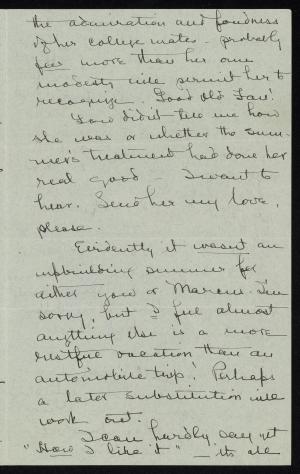 the admiration and fondness
of her college mates - probably
far more than her own
modesty will permit her to
recognize. Good old Fan!
You didn't tell me how
she was or whether the sum-
mer's treatment had done her
real good - I want to
hear. Send her my love,
please.
Evidently it wasn't an
upbuilding summer for
either you or Marcus. I'm
sorry, but I feel almost
anything else is a more
restful vacation than an
automobile trip! Perhaps
a later substitution will
work out.
I can hardly say yet
"How I like it" - its all